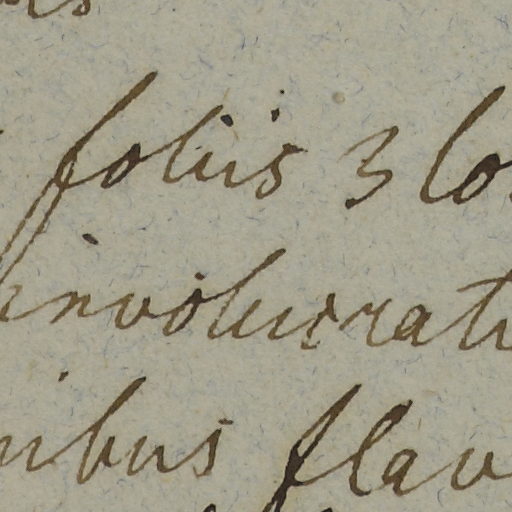 foliis 3 lo
involucrati
ibus flav